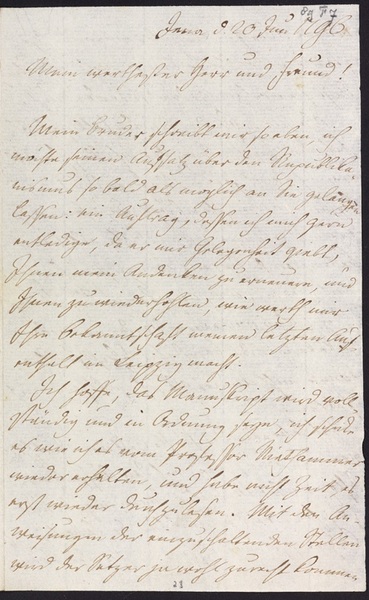 Jena d. 20 Jun 1796
Mein werthester Herr und Freund!
Mein Bruder schreibt mir so eben, ich
möchte seinen Aufsatz über den Republika-
nismus so bald als möglich an Sie gelangen
lassen: ein Auftrag, dessen ich mich gern
entledige, da er mir Gelegenheit giebt,
Ihnen mein Andenken zu erneuern, und
Ihnen zu wiederhohlen, wie werth mir
Ihre Bekanntschaft meinen letzten Auf-
enthalt in Leipzig macht.
Ich hoffe, das Manuskript wird voll-
ständig und in Ordnung seyn, ich schicke
es wie ich es vom Professor Niethammer
wieder erhalten, und habe nicht Zeit, es
erst wieder durchzulesen. Mit den An-
weisungen der einzuschaltenden Stellen
wird der Setzer ja wohl zurecht kommen